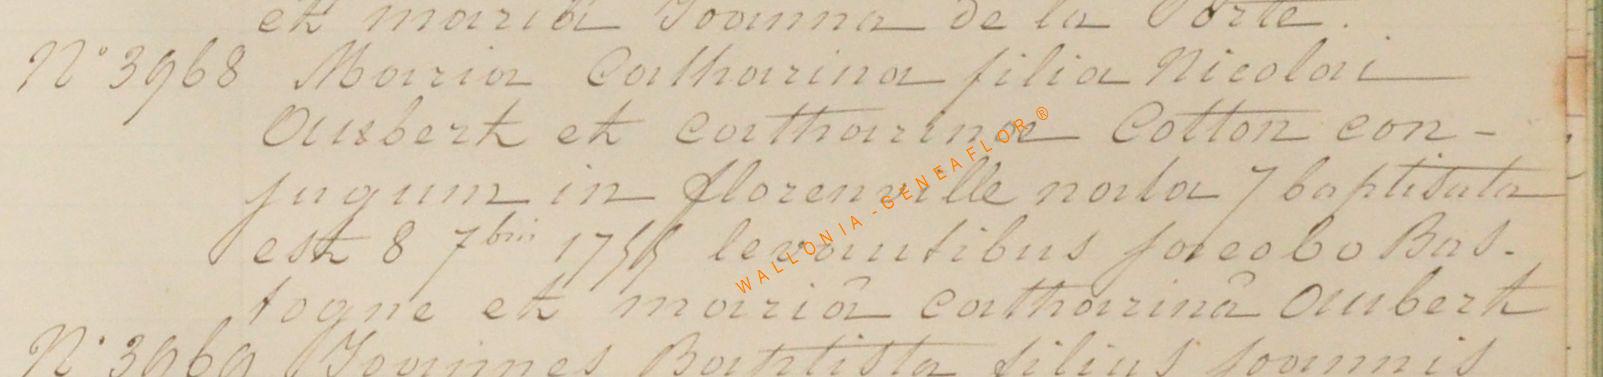 et mariâ Joanna de la Porte.
N° 3968 Maria Catharina filia Nicolai
Aubert et Catharina Cotton con-
jugum in florenville nata 7 baptisata
est 8 7bris 1755 levantibus jacobo Bas-
togne et mariâ Catharinâ Aubert
N° 3969 Joannes Baptista filius Joannis
WALLONIA - GENEAFLOR ®